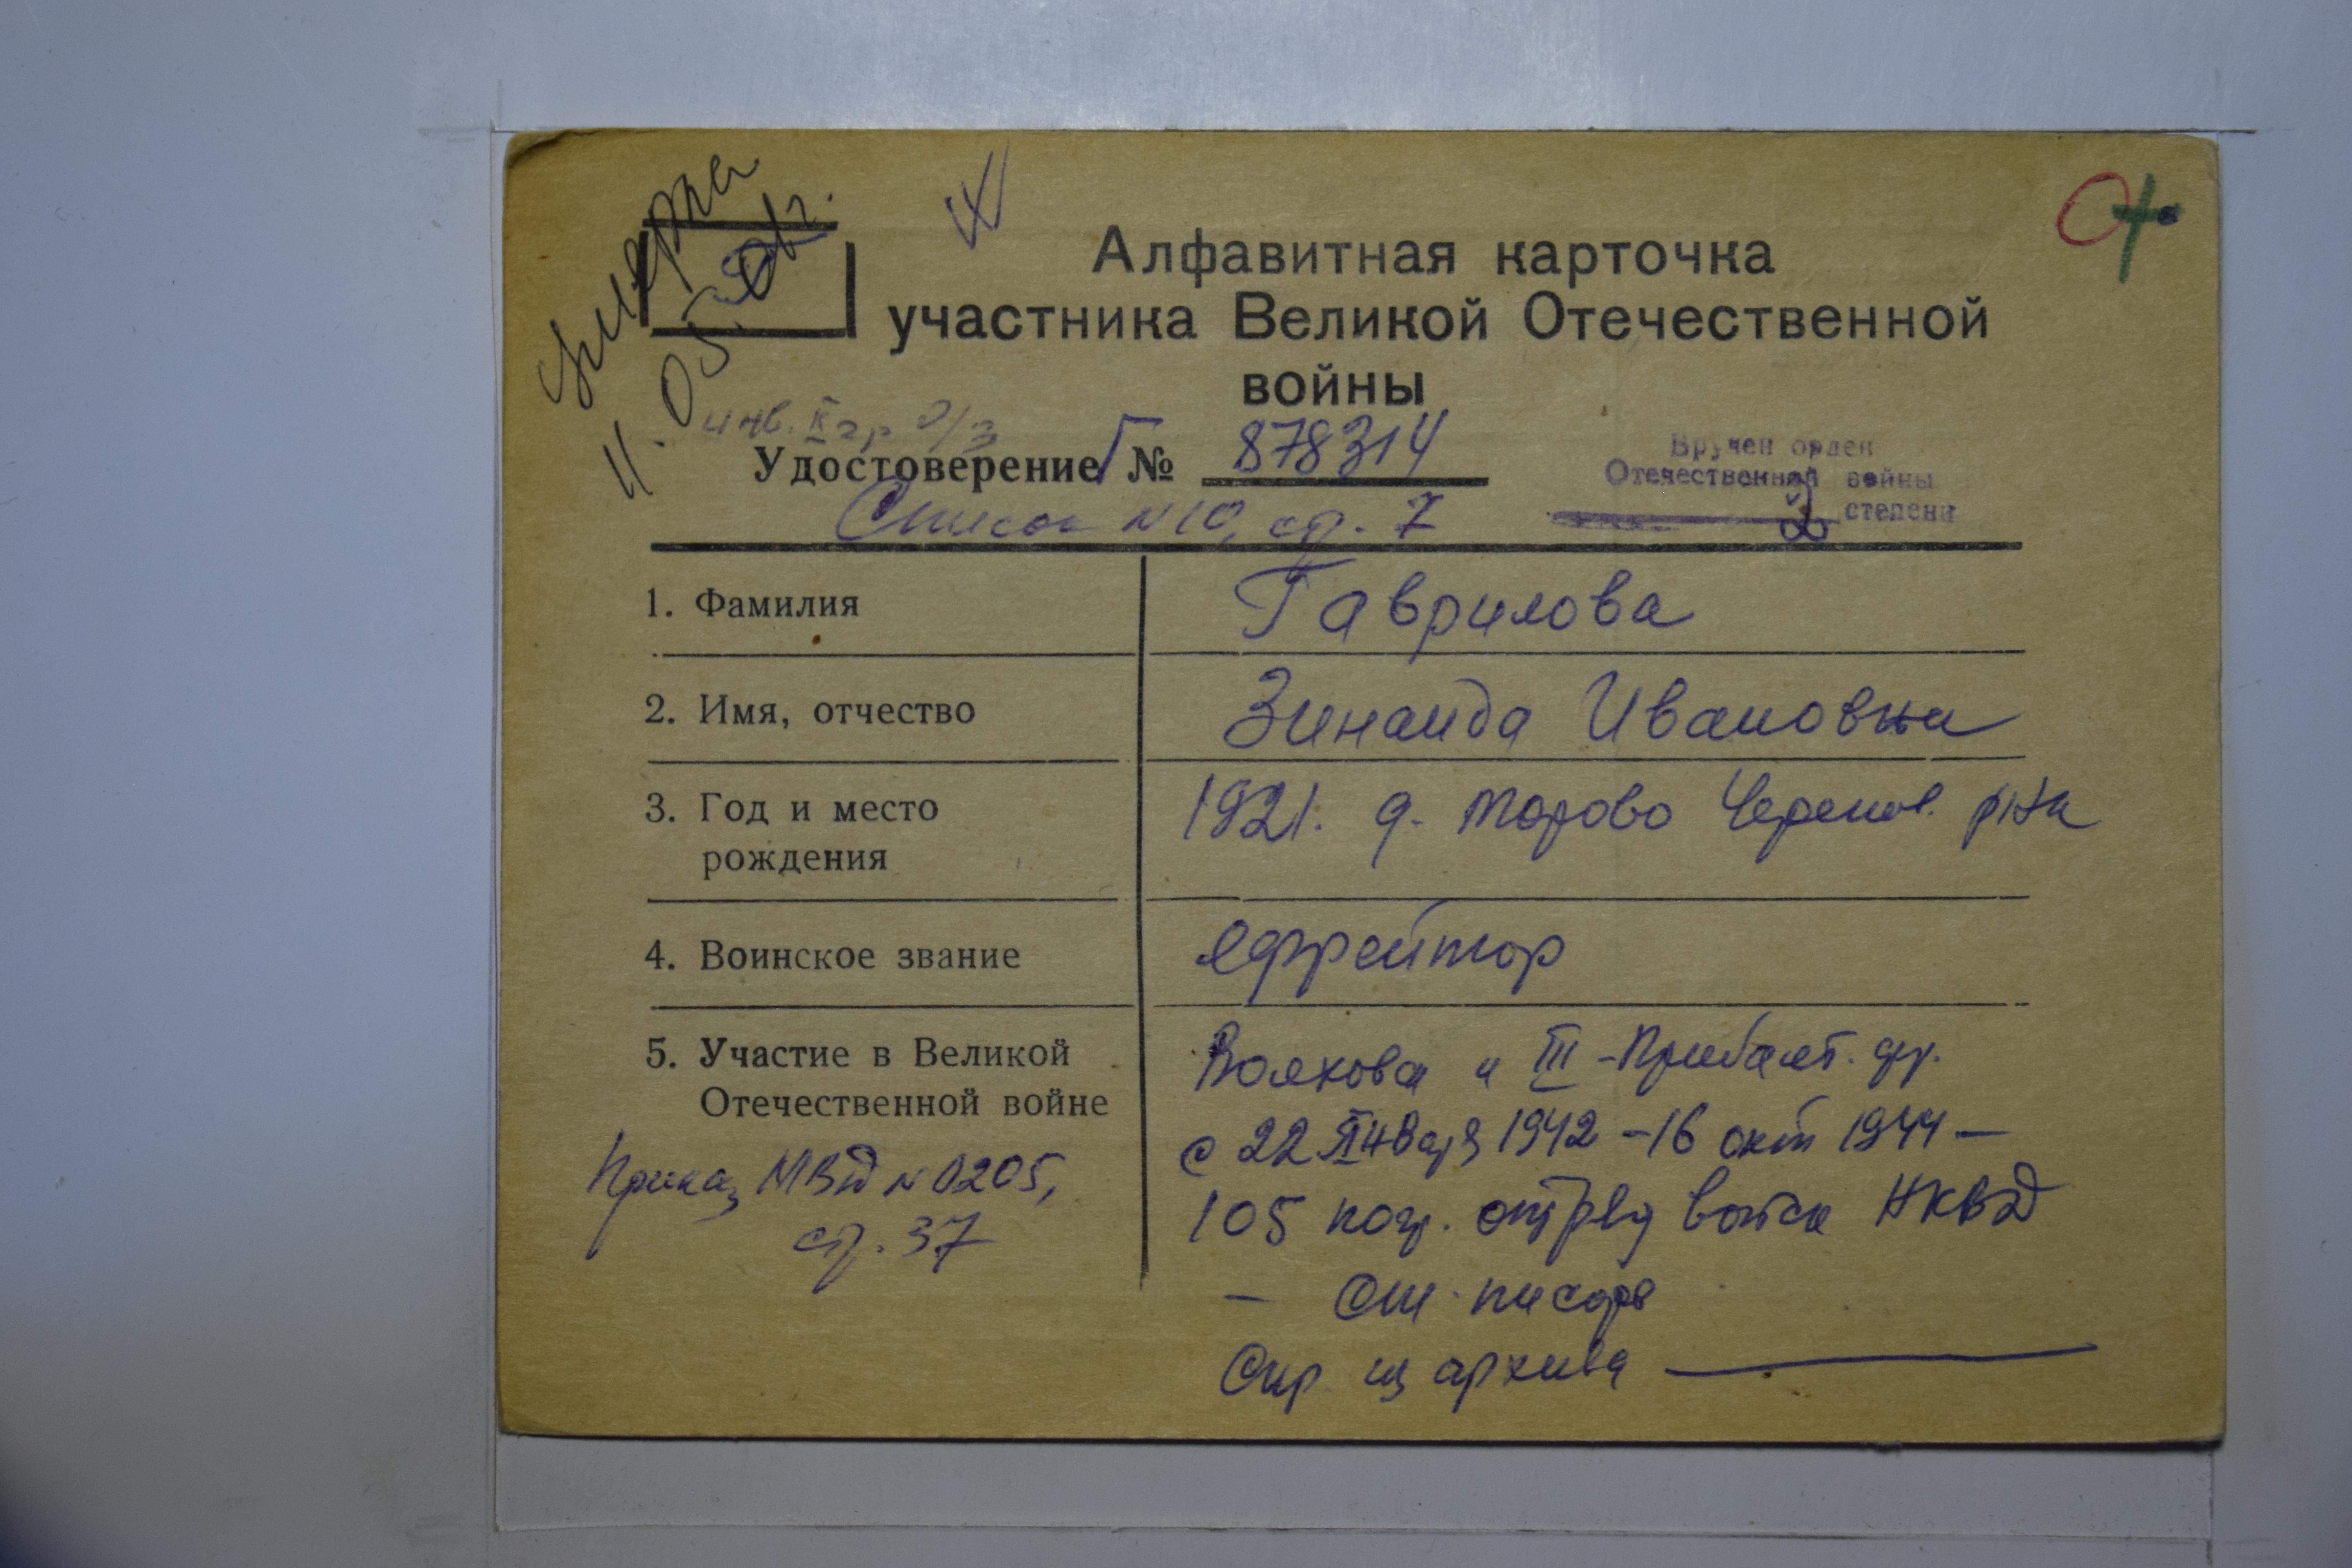 умерла
11.05.
Алфавитная карточка
участника Великой Отечественной
войны
инв. II гр о/з
Удостоверение Г № 878314
Вручен орден
Отечественной войны
2 степени
Список N 10, стр. 7
1. Фамилия
Гаврилова
2. Имя, отчество
Зинаида Ивановна
3. Год и место
рождения
1921. д. Торово Черепов. р-на
4. Воинское звание
ефрейтор
5. Участие в Великой
Отечественной войне
Волхова и III-Прибалт. фр.
с 22 января 1942 - 16 окт 1944 -
105 погр. отряд войск НКВД
- ст. писарь
Спр из архива
Приказ МВД N 0205,
стр. 37